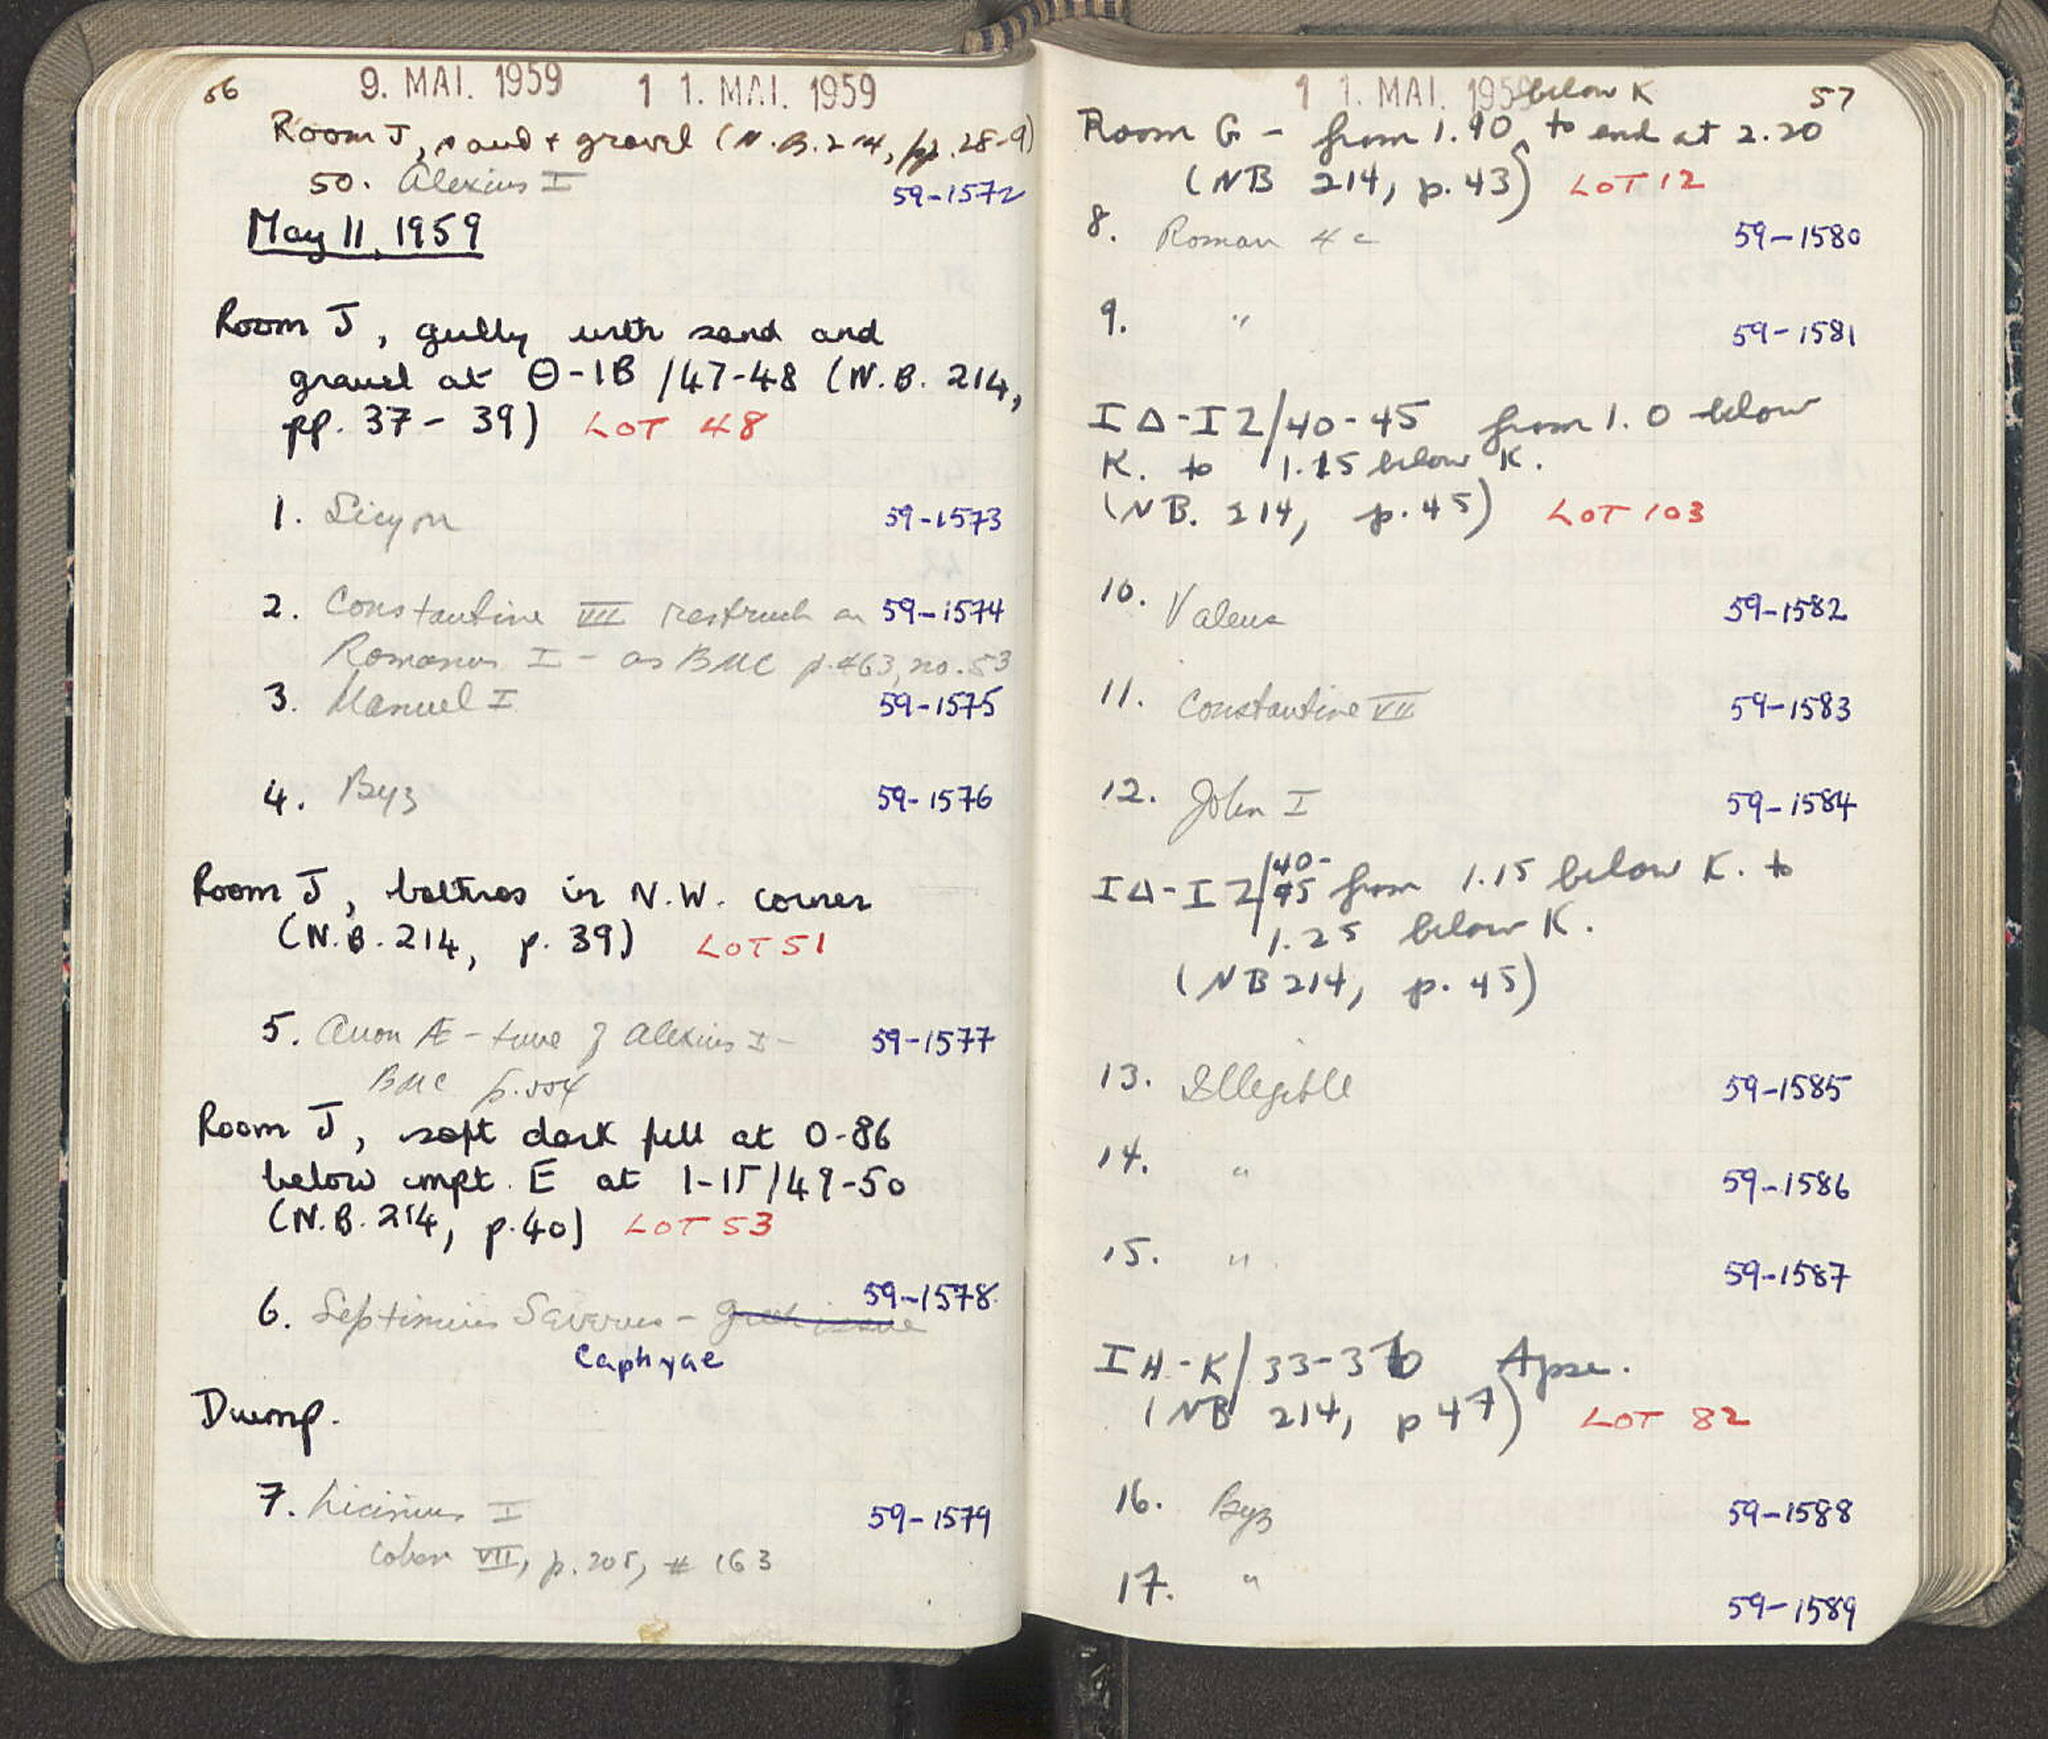 56
9. MAI. 1959 11. MAI. 1959
Room J, sand + gravel (N.B. 214, pp. 28-9)
50. Alexius I 59-1572
May 11, 1959
Room J, gully with sand and
gravel at Θ-IB /47-48 (N.B. 214,
pp. 37-39) LOT 48
1. Sicyon 59-1573
2. Constantine VII restruck on 59-1574
Romanus I - as BMC p. 463, no. 53
3. Manuel I 59-1575
4. Byz 59-1576
Room J, baltros in N.W. corner
(N.B. 214, p. 39) LOT 51
5. Anon Æ - time of Alexius I - 59-1577
BMC p. 554
Room J, soft dark fill at 0-86
below cmpt. E at 1-15/49-50
(N.B. 214, p. 40) LOT 53
6. Septimius Severus - Greek issue 59-1578
Caphyae
Dump.
7. Licinius I 59-1579
Cohen VII, p. 205, # 163
11. MAI. 1959 57
below K
Room G - from 1.90 to end at 2.20
(NB 214, p. 43) LOT 12
8. Roman 4c 59-1580
9. " 59-1581
IΔ-IZ/40-45 from 1.0 below
K. to 1.15 below K.
(NB. 214, p. 45) LOT 103
10. Valens 59-1582
11. Constantine VII 59-1583
12. John I 59-1584
IΔ-IZ/40-45 from 1.15 below K. to
1.25 below K.
(NB 214, p. 45)
13. Illegible 59-1585
14. " 59-1586
15. " 59-1587
IH-K/33-36 Apse.
(NB 214, p 47) LOT 82
16. Byz 59-1588
17. " 59-1589